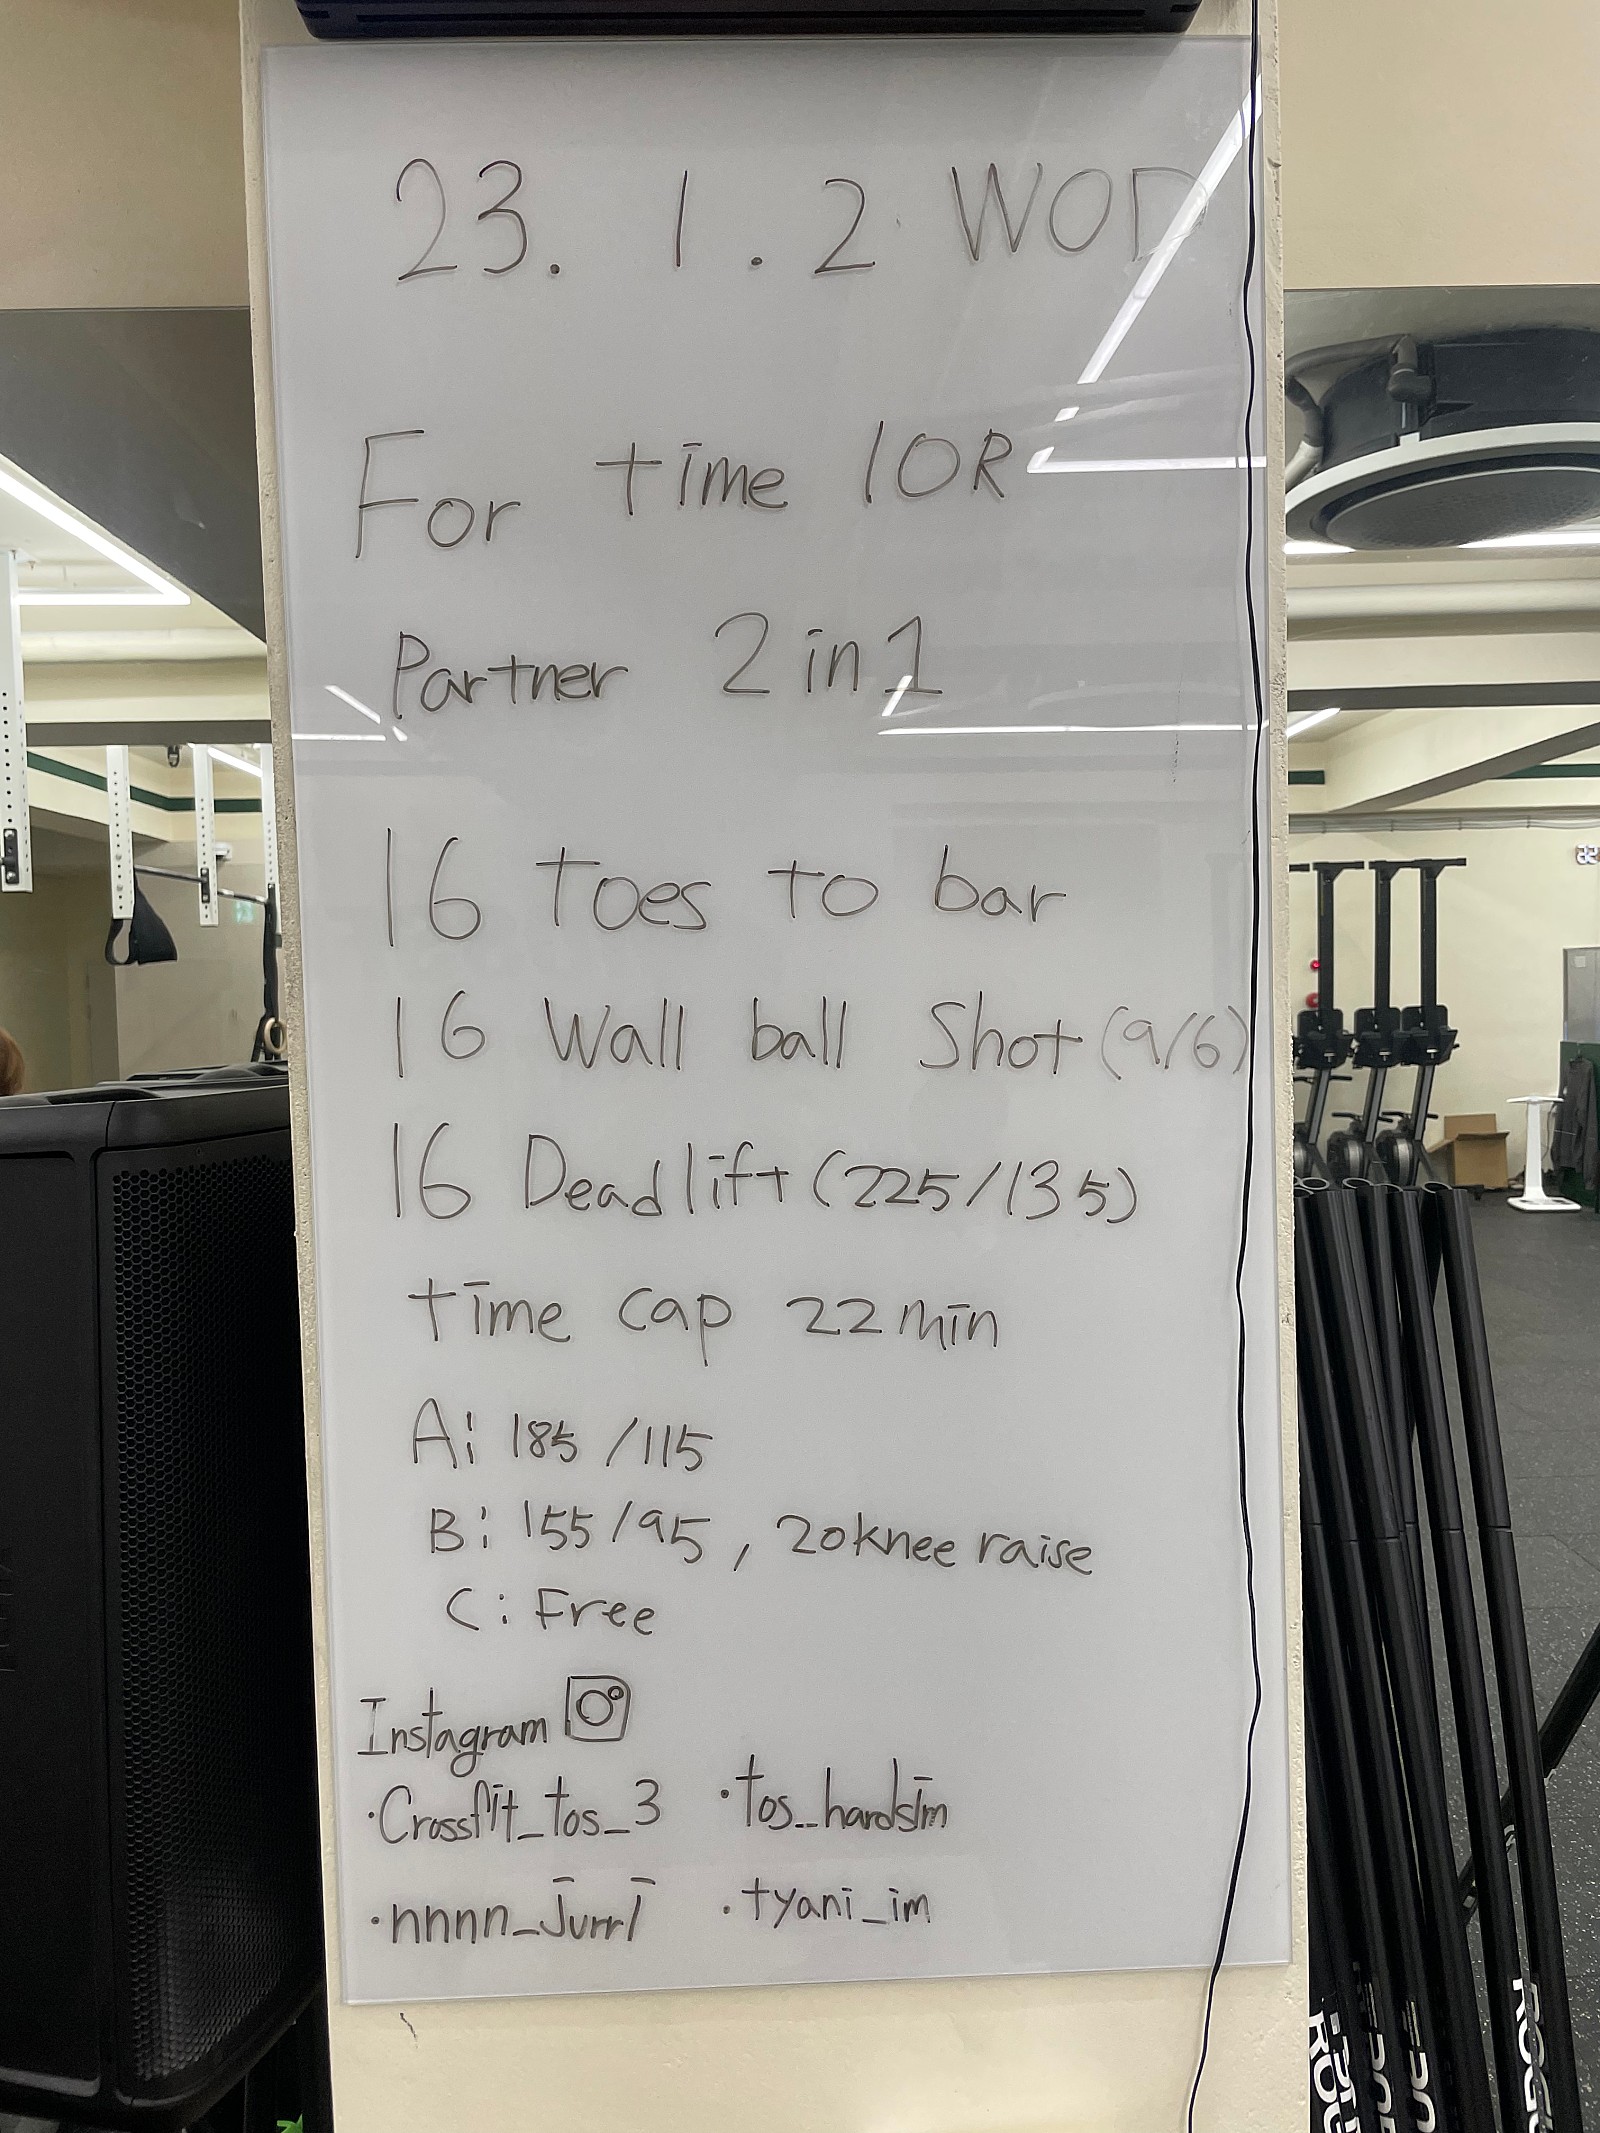 23. 1. 2 WOD
For time 10R
Partner 2 in 1
16 Toes to bar
16 Wall ball Shot (9/6)
16 Deadlift (225/135)
time cap 22min
A: 185/115
B: 155/95, 20knee raise
C: Free
Instagram
·Crossfit_tos_3 ·tos_hardsim
·nnnn_Jurrl ·tyani_im
ROGUE